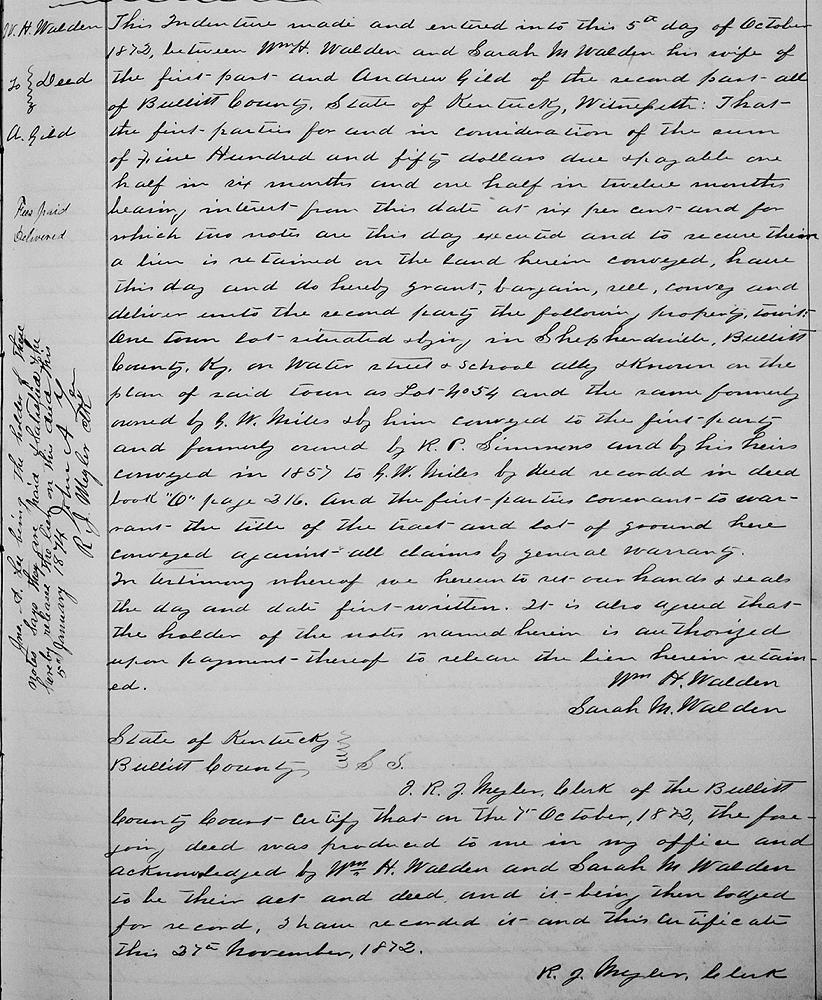 W. H. Walden
To } Deed
A. Gild
Fees paid
Delivered
This Indenture made and entered into this 5th day of October
1872, between Wm H. Walden and Sarah M Walden his wife of
the first part and Andrew Gild of the second part all
of Bullitt County, State of Kentucky, Witnesseth: That
the first parties for and in consideration of the sum
of Five Hundred and fifty dollars due & payable one
half in six months and one half in twelve months
bearing interest from this date at six per cent and for
which two notes are this day executed and to secure them
a lien is retained on the land herein conveyed, have
this day and do hereby grant, bargain, sell, convey and
deliver unto the second party the following property, towit:
One town lot situated & lying in Shepherdsville, Bullitt
County, Ky. on Water street & School alley & known on the
plan of said town as Lot No 54 and the same formerly
owned by G. W. Miles & by him conveyed to the first party
and formerly owned by R. P. Simmons and by his heirs
conveyed in 1857 to G. W. Miles by deed recorded in deed
book "O" page 216. And the first parties covenant to war-
rant the title of the tract and lot of ground here
conveyed against all claims by general warranty.
In testimony whereof we hereunto set our hands & seals
the day and date first written. It is also agreed that
the holder of the notes named herein is authorized
upon payment thereof to release the lien herein retain-
ed.
Wm H. Walden
Sarah M. Walden
State of Kentucky
Bullitt County } S S.
I. R. J. Meyler, Clerk of the Bullitt
County Court certify that on the 7th October, 1872, the fore-
going deed was produced to me in my office and
acknowledged by Wm H. Walden and Sarah M Walden
to be their act and deed and it being then lodged
for record, I have recorded it and this certificate
this 27th November, 1872.
R. J. Meyler, Clerk
Jno. A. Lee being the holder of these
notes says they are paid & satisfied & he
hereby releases the lien on this deed this
15th January 1874 John A Lee
R. J. Meyler Clk